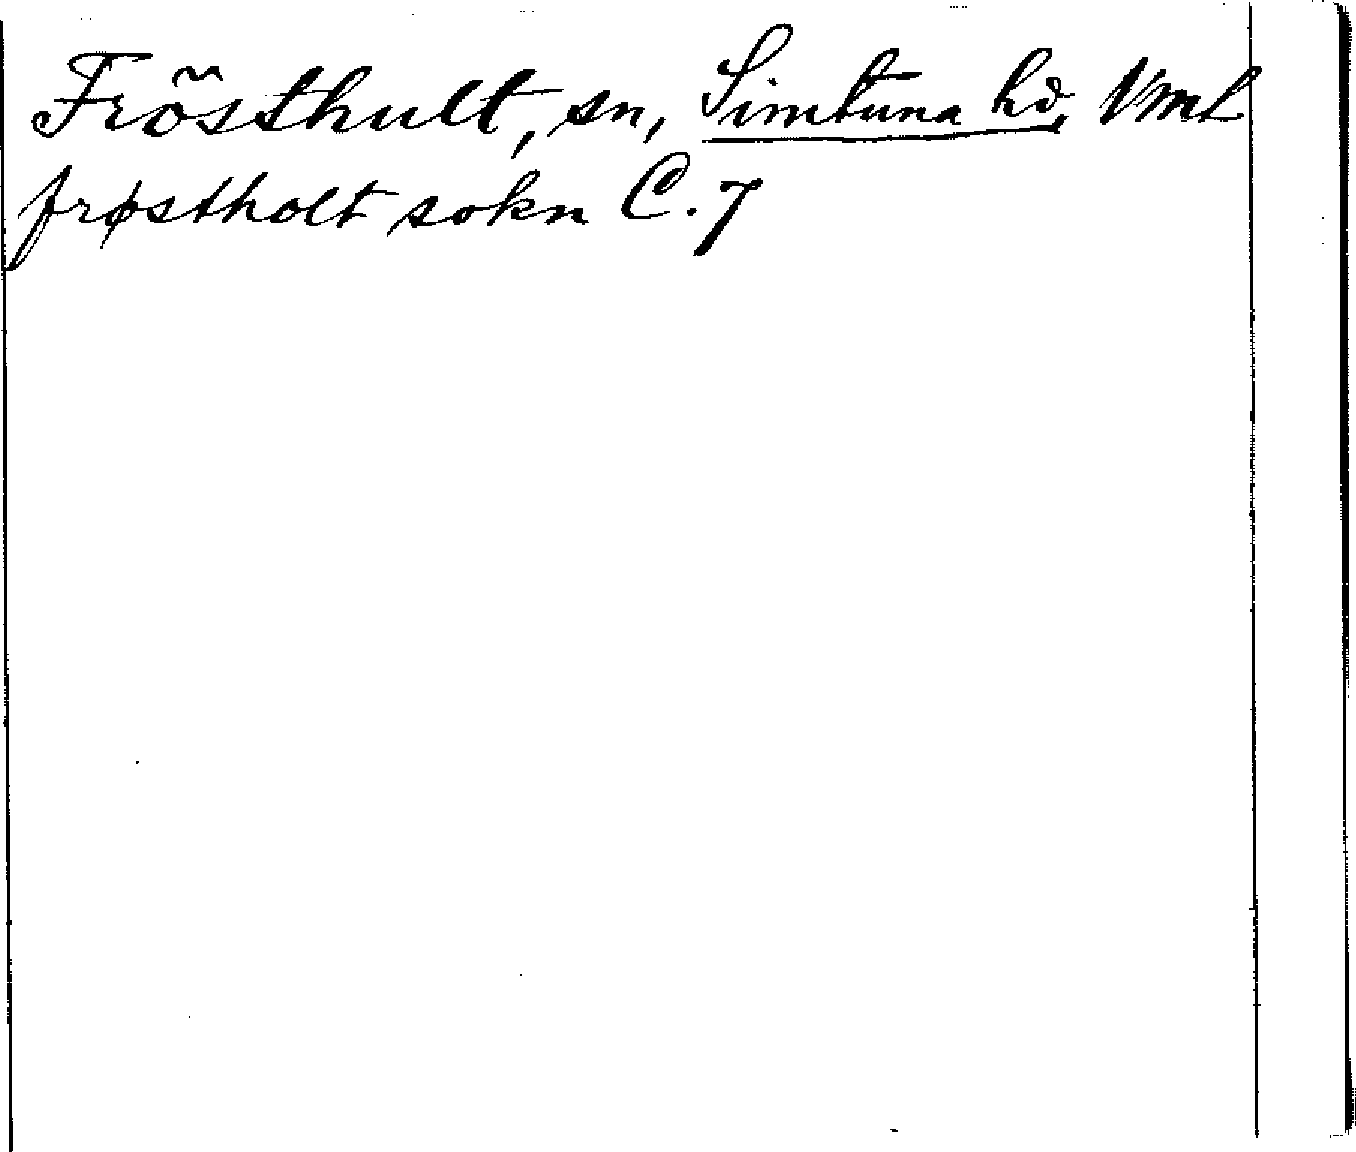 Frösthult, sn, Simtuna hd, Vml
frøstholt sokn C.7